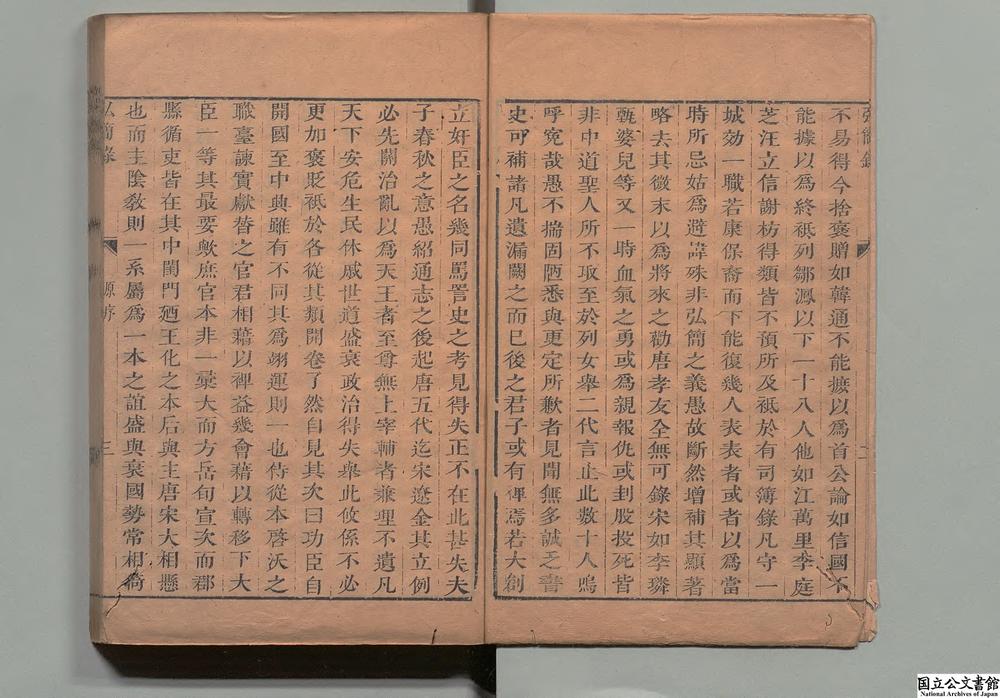 不易得今捨褒贈如韓通不能據以爲首公論如信國不
能據以爲終祗列鄒㵯以下一十八人他如江萬里李庭
芝汪立信謝枋得類皆不預所及祗於有司簿錄凡守一
城効一職若康保裔而下能復幾人表表者或者以爲當
時所忌姑爲避諱殊非弘簡之義愚故斷然增補其顯著
略去其微末以爲將來之勸唐孝友全無可錄宋如李璘
甄婆兒等又一時血氣之勇或爲親報仇或刲股投死皆
非中道聖人所不取至於列女舉二代言止此數十人嗚
呼寃哉愚不揣固陋悉與更定所歉者見聞無多誠乏書
史可補諸凡遺漏闕之而已後之君子或有俾焉若大創
立奸臣之名幾同罵詈史之考見得失正不在此甚失夫
子春秋之意愚紹通志之後起唐五代迄宋遼金其立例
必先關治亂以爲天王者至尊無上宰輔者兼理不遺凡
天下安危生民休戚世道盛衰政治得失舉此攸係不必
更加褒貶祗於各從其類開卷了然自見其次曰功臣自
開國至中興雖有不同其爲翊運則一也侍從本啓沃之
職臺諫實獻替之官君相藉以裨益幾會藉以轉移下大
臣一等其最要歟庶官本非一彙大而方岳旬宣次而郡
縣循吏皆在其中閨門廼王化之本后與主唐宋大相懸
也而主陰敎則一系屬爲一本之誼盛與衰國勢常相倚
弘簡錄
原序
三
弘簡錄
二
国立公文書館
National Archives of Japan